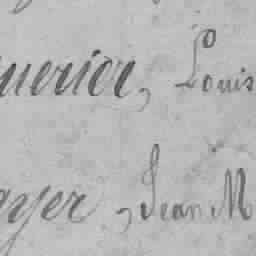 uerier, Louis
eyer, Jean M